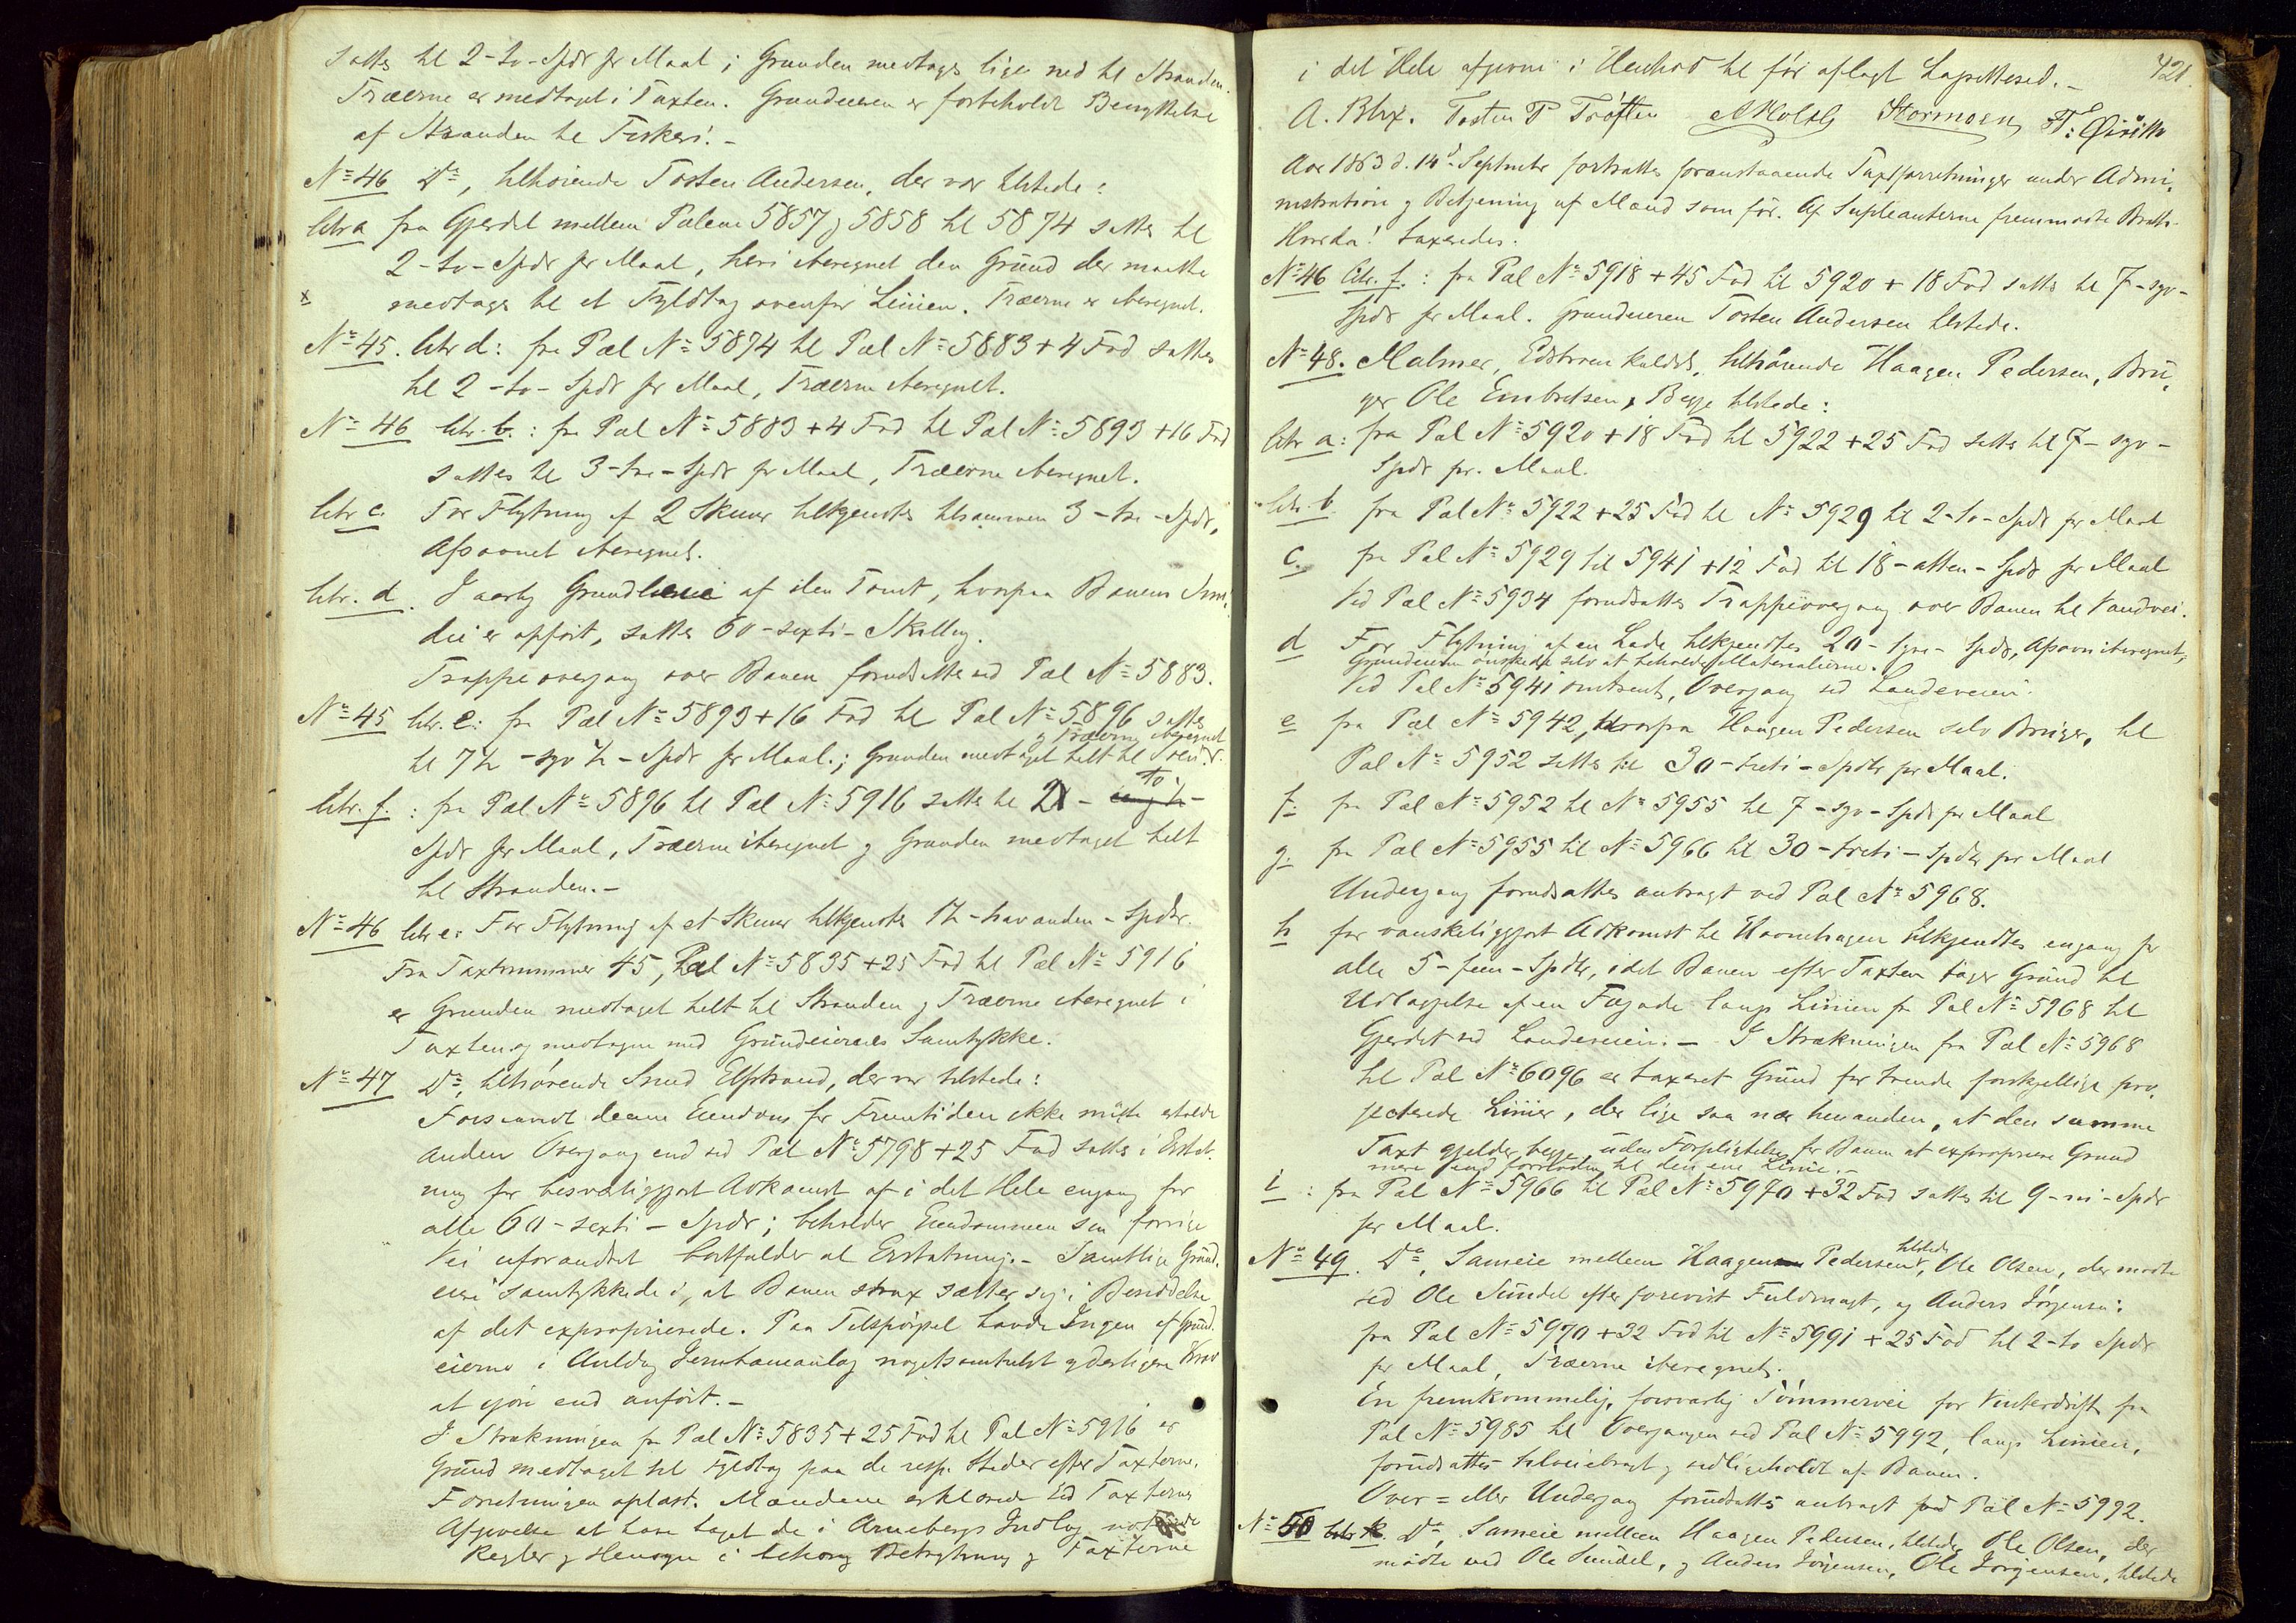 sattes til 2-to-Spdr pr Maal; Grunden medtages lige ned til Stranden.
Træerne er medtaget i Taxten. Grundeieren er forbeholdt Benyttelse
af Stranden til Fiskeri.-
No 46 Do, tilhørende Tosten Andersen, der var tilstede:
litr a fra Gjerdet mellem Pælene 5857 og 5858 til 5874 sattes til
2-to-Spdr pr Maal, heri iberegnet den Grund der maatte
x medtages til et Fyldtag ovenfor Linien. Træerne er iberegnet.
No 45. litr d: fra Pæl No 5874 til Pæl No 5883+4 Fod sattes
til 2-to-Spdr pr Maal, Træerne iberegnet.
No 46 litr. b.: fra Pæl No 5883+4 Fod til Pæl No 5893+16 Fod
sattes til 3-tre-Spdr pr Maal, Træerne iberegnet.
litr c. For Flytning af 2 Skuur tilkjendtes tilsammen 3-tre-Spdr,
Afsavnet iberegnet.
litr. d. I aarlig Grundleie af den Tomt, hvorpaa Banens Smi-
die er opført, sattes 60-sexti-Skilling.
Trappeovergang over Banen forudsattes ved Pæl No 5883.
No 45 litr. e: fra Pæl No 5893+16 Fod til Pæl No 5896 sattes
og Træerne iberegnet
til 7½-syv ½-Spdr pr Maal.; Grunden medtaget helt til
litr. f.: fra Pæl No 5896 til Pæl No 5916 sattes til 2 - to -
Spdr pr Maal, Træerne iberegnet og Grunden medtaget helt
til Stranden.-
No 46 litr e: For Flytning af et Skuur tilkjendtes 1½-halvanden-Spdr.
Fra Taxtnummer 45, Pæl No 5835+25 Fod til Pæl No 5916
er Grunden medtaget helt til Stranden og Træerne iberegnet i
Taxten og medtagne med Grundeiernes Samtykke.
No 47 Do, tilhørende Smed Elfstrand, der var tilstede:
Forsaavidt denne Eiendom for Fremtiden ikke maatte erholde
anden Overgang end ved Pæl No 5798+25 Fod sattes i Erstat-
ning for besværliggjort Adkomst af i det Hele engang for
alle 60-sexti-Spdr; beholder Eiendommen sin forrige
Vei uforandret bortfalder al Erstatning.- Samtlige Grund-
eiere samtykkede i, at Banen strax sætter sig i Besiddelse
af det exproprierede. Paa Tilspørgsel havde Ingen af Grund-
eierne i Anledning Jernbaneanlæg nogetsomhelst yderligere Krav
at gjøre end anført.-
I Strækningen fra Pæl No 5835+25 Fod til Pæl No 5916 er
Grund medtaget til Fyldtag paa de resp. Steder efter Taxterne.
Forretningen oplæst. Mændene erklærede ved Taxternes
Afgivelse at have taget de i Arnebergs Indlæg
Regler og Hensyn i behørig Betragtning og Taxterne
421.
i det Hele afgivne i Henhold til før aflagt Lagrettesed.-
A. Blix. Tosten P Trøften Stormoen
Aar 1863 d. 14de September fortsattes foranstaaende Taxtforretninger under Admi-
nistration og Betjening af Mænd som før. Af Supleanterne fremmødte
taxeredes:
No 46 litr. f.: fra Pæl No 5918+45 Fod til 5920+18 Fod sattes til 7-syv-
Spdr pr Maal. Grundeieren Tosten Andersen tilstede.
No 48. Malmer, kaldet, tilhørende Haagen Pedersen, Bru-
ger Ole Embretsen, Begge tilstede:
litr a: fra Pæl No 5920+18 Fod til 5922+25 Fod sattes til 7-syv-
Spdr pr. Maal.
litr. b. fra Pæl No 5922+25 Fod til No 5929 til 2-to-Spdr pr Maal
c. fra Pæl No 5929 til 5941+12 Fod til 18-atten-Spdr pr Maal
Ved Pæl No 5934 forudsattes Trappeovergang over Banen til Vandvei.
d For Flytning af en Lade tilkjendtes 20-tyve-Spdr, Afsavn iberegnet,
Grundeieren ønskede selv at beholde Materialierne.
Ved Pæl No 5941 omtrent, Overgang ved Landeveien.
e fra Pæl No 5942, hvorpaa Haagen Pedersen selv Bruger, til
Pæl No 5952 sattes til 30-treti-Spdr pr Maal.
f: fra Pæl No 5952 til No 5955 til 7-syv-Spdr pr Maal
g. fra Pæl No 5955 til No 5966 til 30-treti-Spdr pr Maal
Undergang forudsattes anbragt ved Pæl No 5968.
h for vanskeliggjort Adkomst til Havnehagen tilkjendtes engang for
alle 5-fem-Spdr, idet Banen efter Taxten tager Grund til
Udlæggelse af en Fægade langs Linien fra Pæl No 5968 til
Gjerdet ved Landeveien.- I Strækningen fra Pæl No 5968
til Pæl No 6096 er taxeret Grund for tvende forskjellige pro-
jecterede Linier, der lige saa nær hinanden, at den samme
Taxt gjelder begge, uden Forpligtelse for Banen at expropriere Grund
mere end fornøden til den ene Linie.-
i: fra Pæl No 5966 til Pæl No 5970+32 Fod sattes til 9-ni-Spdr
pr Maal.
No 49. Do, Sameie mellem Haagen Pedersen, tilstede, Ole Olsen, der mødte
ved Ole Sundel efter forevist Fuldmagt, og Anders Jørgensen:
fra Pæl No 5970+32 Fod til No 5991+25 Fod til 2-to Spdr
pr Maal, Træerne iberegnet.
En fremkommelig, forsvarlig Tømmervei for Vinterdrift fra
Pæl No 5985 til Overgangen ved Pæl No 5992, langs Linien,
forudsattes tilveiebragt og vedligeholdt af Banen.
Over= eller Undergang forudsattes anbragt ved Pæl No 5992.
No 50 Do, Sameie mellem Haagen Pedersen, tilstede, Ole Olsen, der
mødte ved Ole Sundel, og Anders Jørgensen, Ole Jørgensen, tilstede